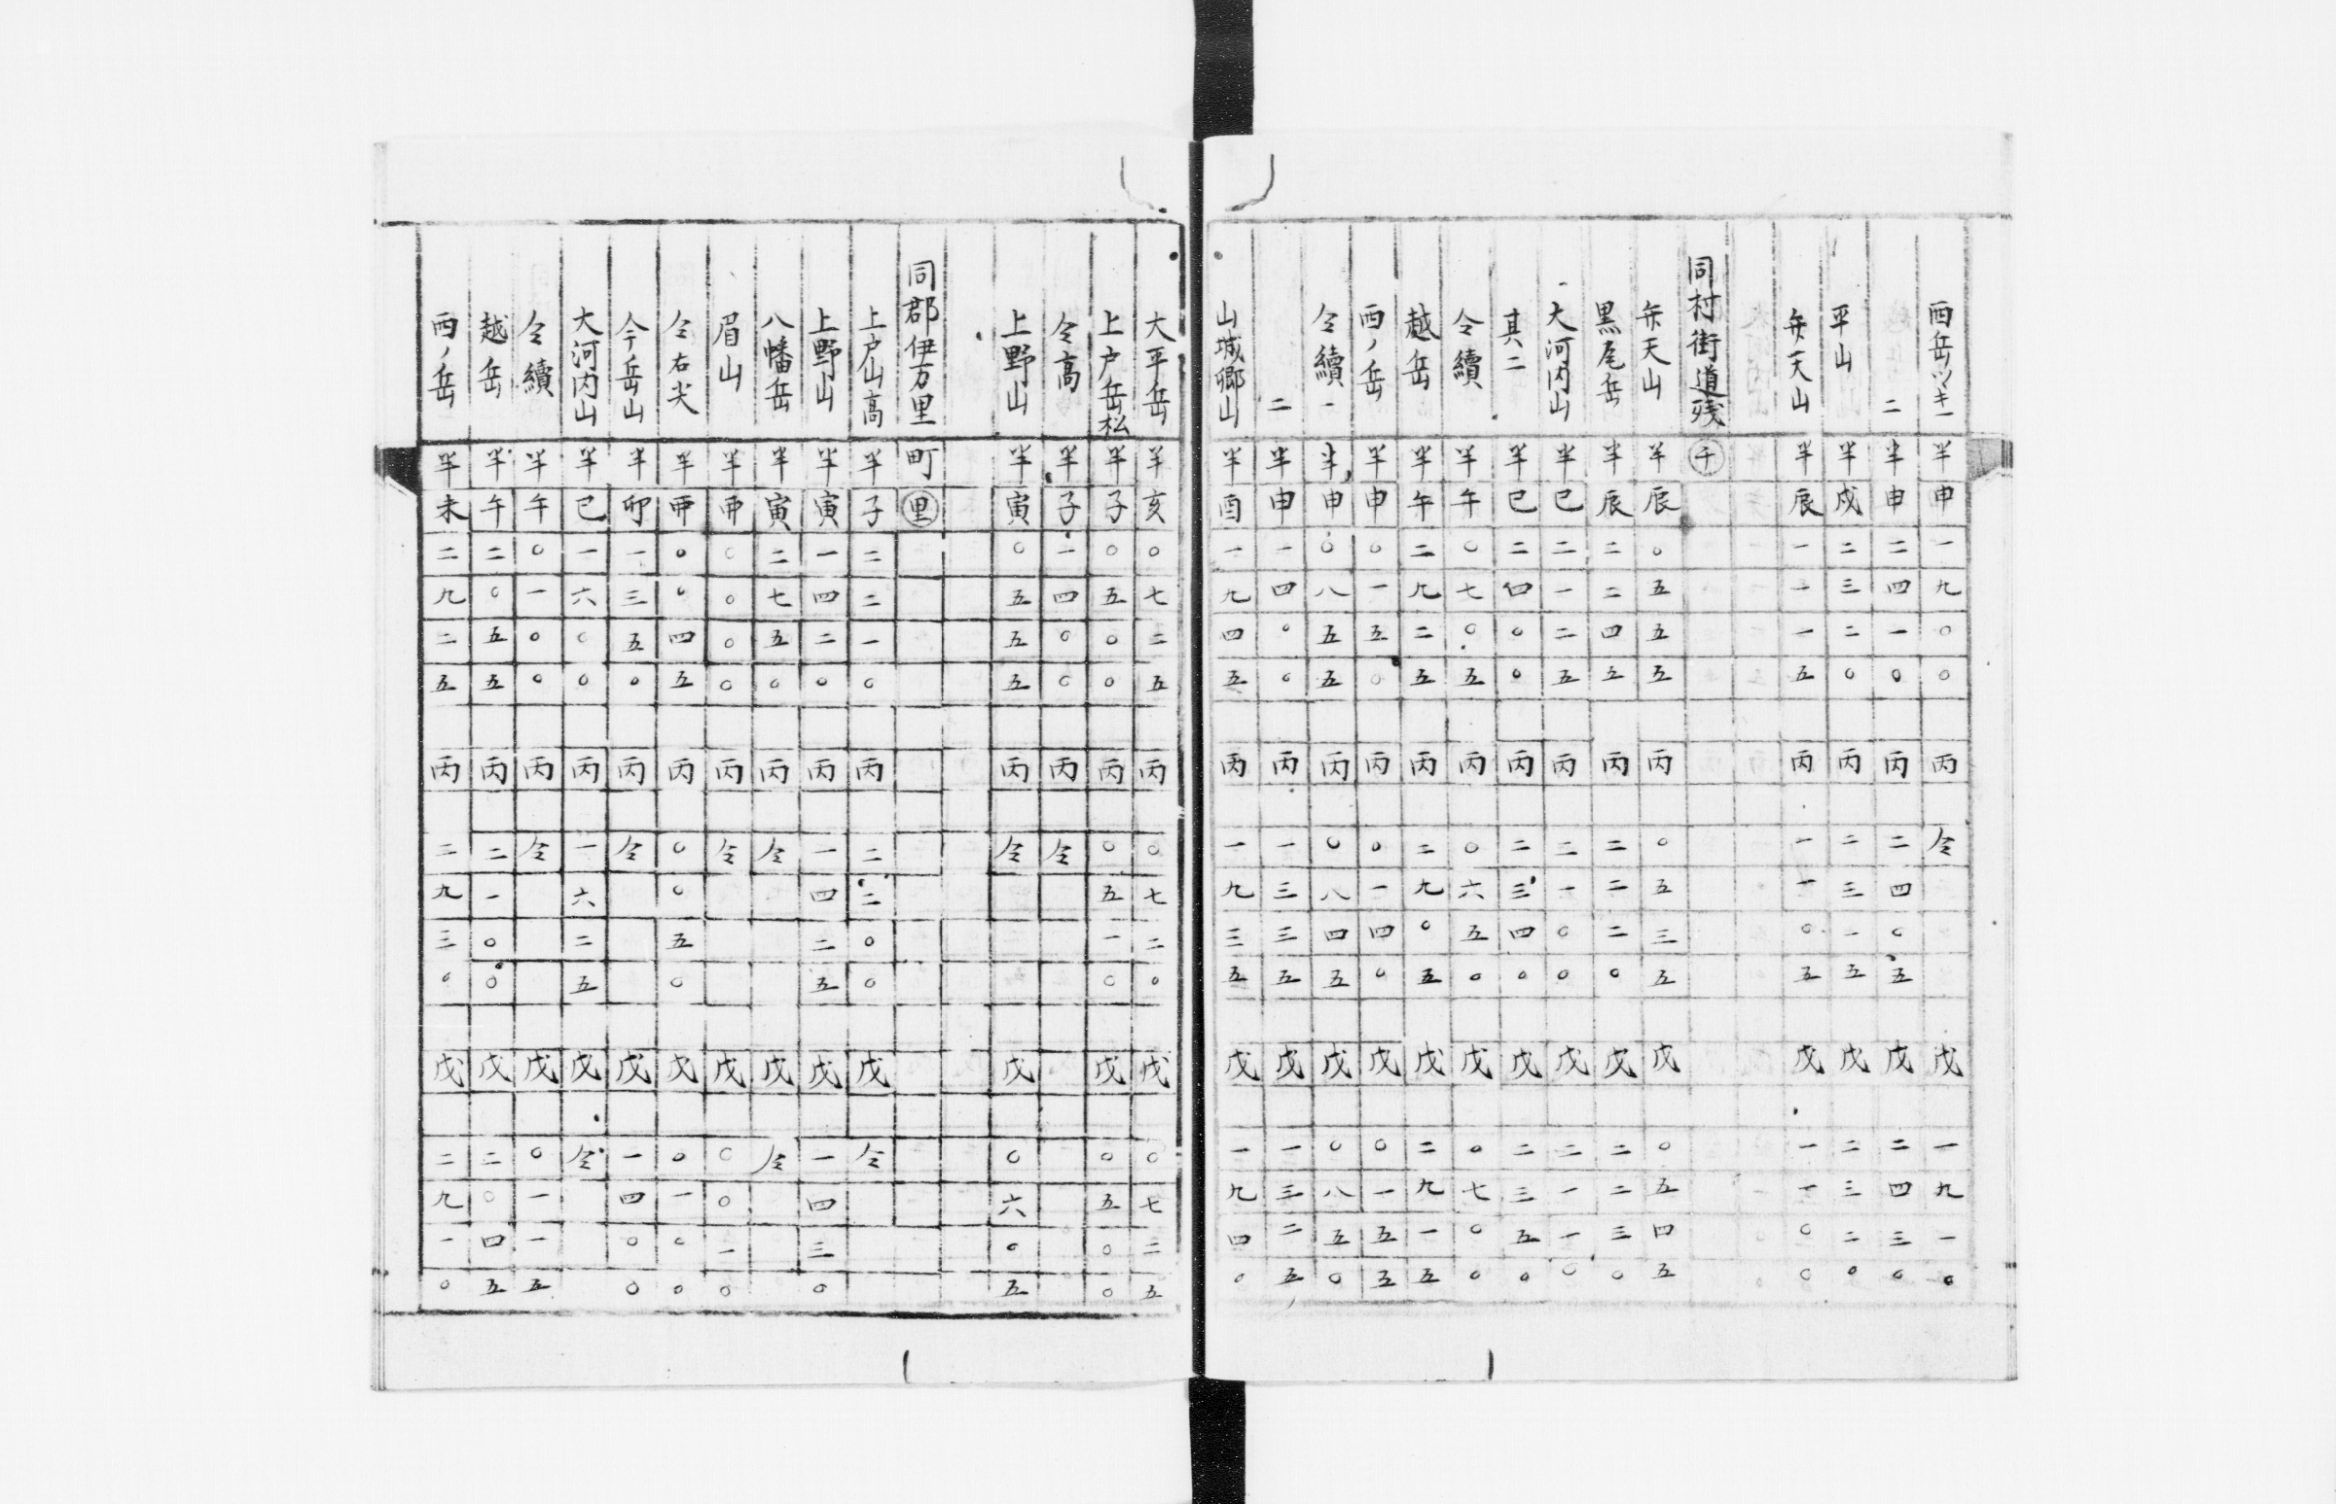 西岳ツキ一 半 申 一 九 〇 〇 丙 仝 戊 一 九 一 〇
二 半 申 二 四 一 〇 丙 二 四 〇 五 戊 二 四 三 〇
平山 半 戌 二 三 二 〇 丙 二 三 一 五 戊 二 三 二 〇
弁天山 半 辰 一 一 一 五 丙 一 一 〇 五 戊 一 一 〇 〇
同村街道残 千
弁天山 半 辰 〇 五 五 五 丙 〇 五 三 五 戊 〇 五 四 五
黒尾岳 半 辰 二 二 四 五 丙 二 二 二 〇 戊 二 二 三 〇
大河内山 半 巳 二 一 二 五 丙 二 一 〇 〇 戊 二 一 一 〇
其二 半 巳 二 四 〇 〇 丙 二 三 四 〇 戊 二 三 五 〇
仝續 半 午 〇 七 〇 五 丙 〇 六 五 〇 戊 〇 七 〇 〇
越岳 半 午 二 九 二 五 丙 二 九 〇 五 戊 二 九 一 五
西ノ岳 半 申 〇 一 五 〇 丙 〇 一 四 〇 戊 〇 一 五 五
仝續一 半 申 〇 八 五 五 丙 〇 八 四 五 戊 〇 八 五 〇
二 半 申 一 四 〇 〇 丙 一 三 三 五 戊 一 三 二 五
山城郷山 半 酉 一 九 四 五 丙 一 九 三 五 戊 一 九 四 〇
大平岳 半 亥 〇 七 二 五 丙 〇 七 二 〇 戊 〇 七 二 五
上戸岳松 半 子 〇 五 〇 〇 丙 〇 五 一 〇 戊 〇 五 〇 〇
仝高 半 子 一 四 〇 〇 丙 仝
上野山 半 寅 〇 五 五 五 丙 仝 戊 〇 六 〇 五
同郡伊万里町 里
上戸山高 半 子 二 二 一 〇 丙 二 二 〇 〇 戊 仝
上野山 半 寅 一 四 二 〇 丙 一 四 二 五 戊 一 四 三 〇
八幡岳 半 寅 二 七 五 〇 丙 仝 戊 仝
眉山 半 甲 〇 〇 〇 〇 丙 仝 戊 〇 〇 一 〇
仝右尖 半 甲 〇 〇 四 五 丙 〇 〇 五 〇 戊 〇 一 〇 〇
今岳山 半 卯 一 三 五 〇 丙 仝 戊 一 四 〇 〇
大河内山 半 巳 一 六 〇 〇 丙 一 六 二 五 戊 仝
仝續 半 午 〇 一 〇 〇 丙 仝 戊 〇 一 一 五
越岳 半 午 二 〇 五 五 丙 二 一 〇 〇 戊 二 〇 四 五
西ノ岳 半 未 二 九 二 五 丙 二 九 三 〇 戊 二 九 一 〇